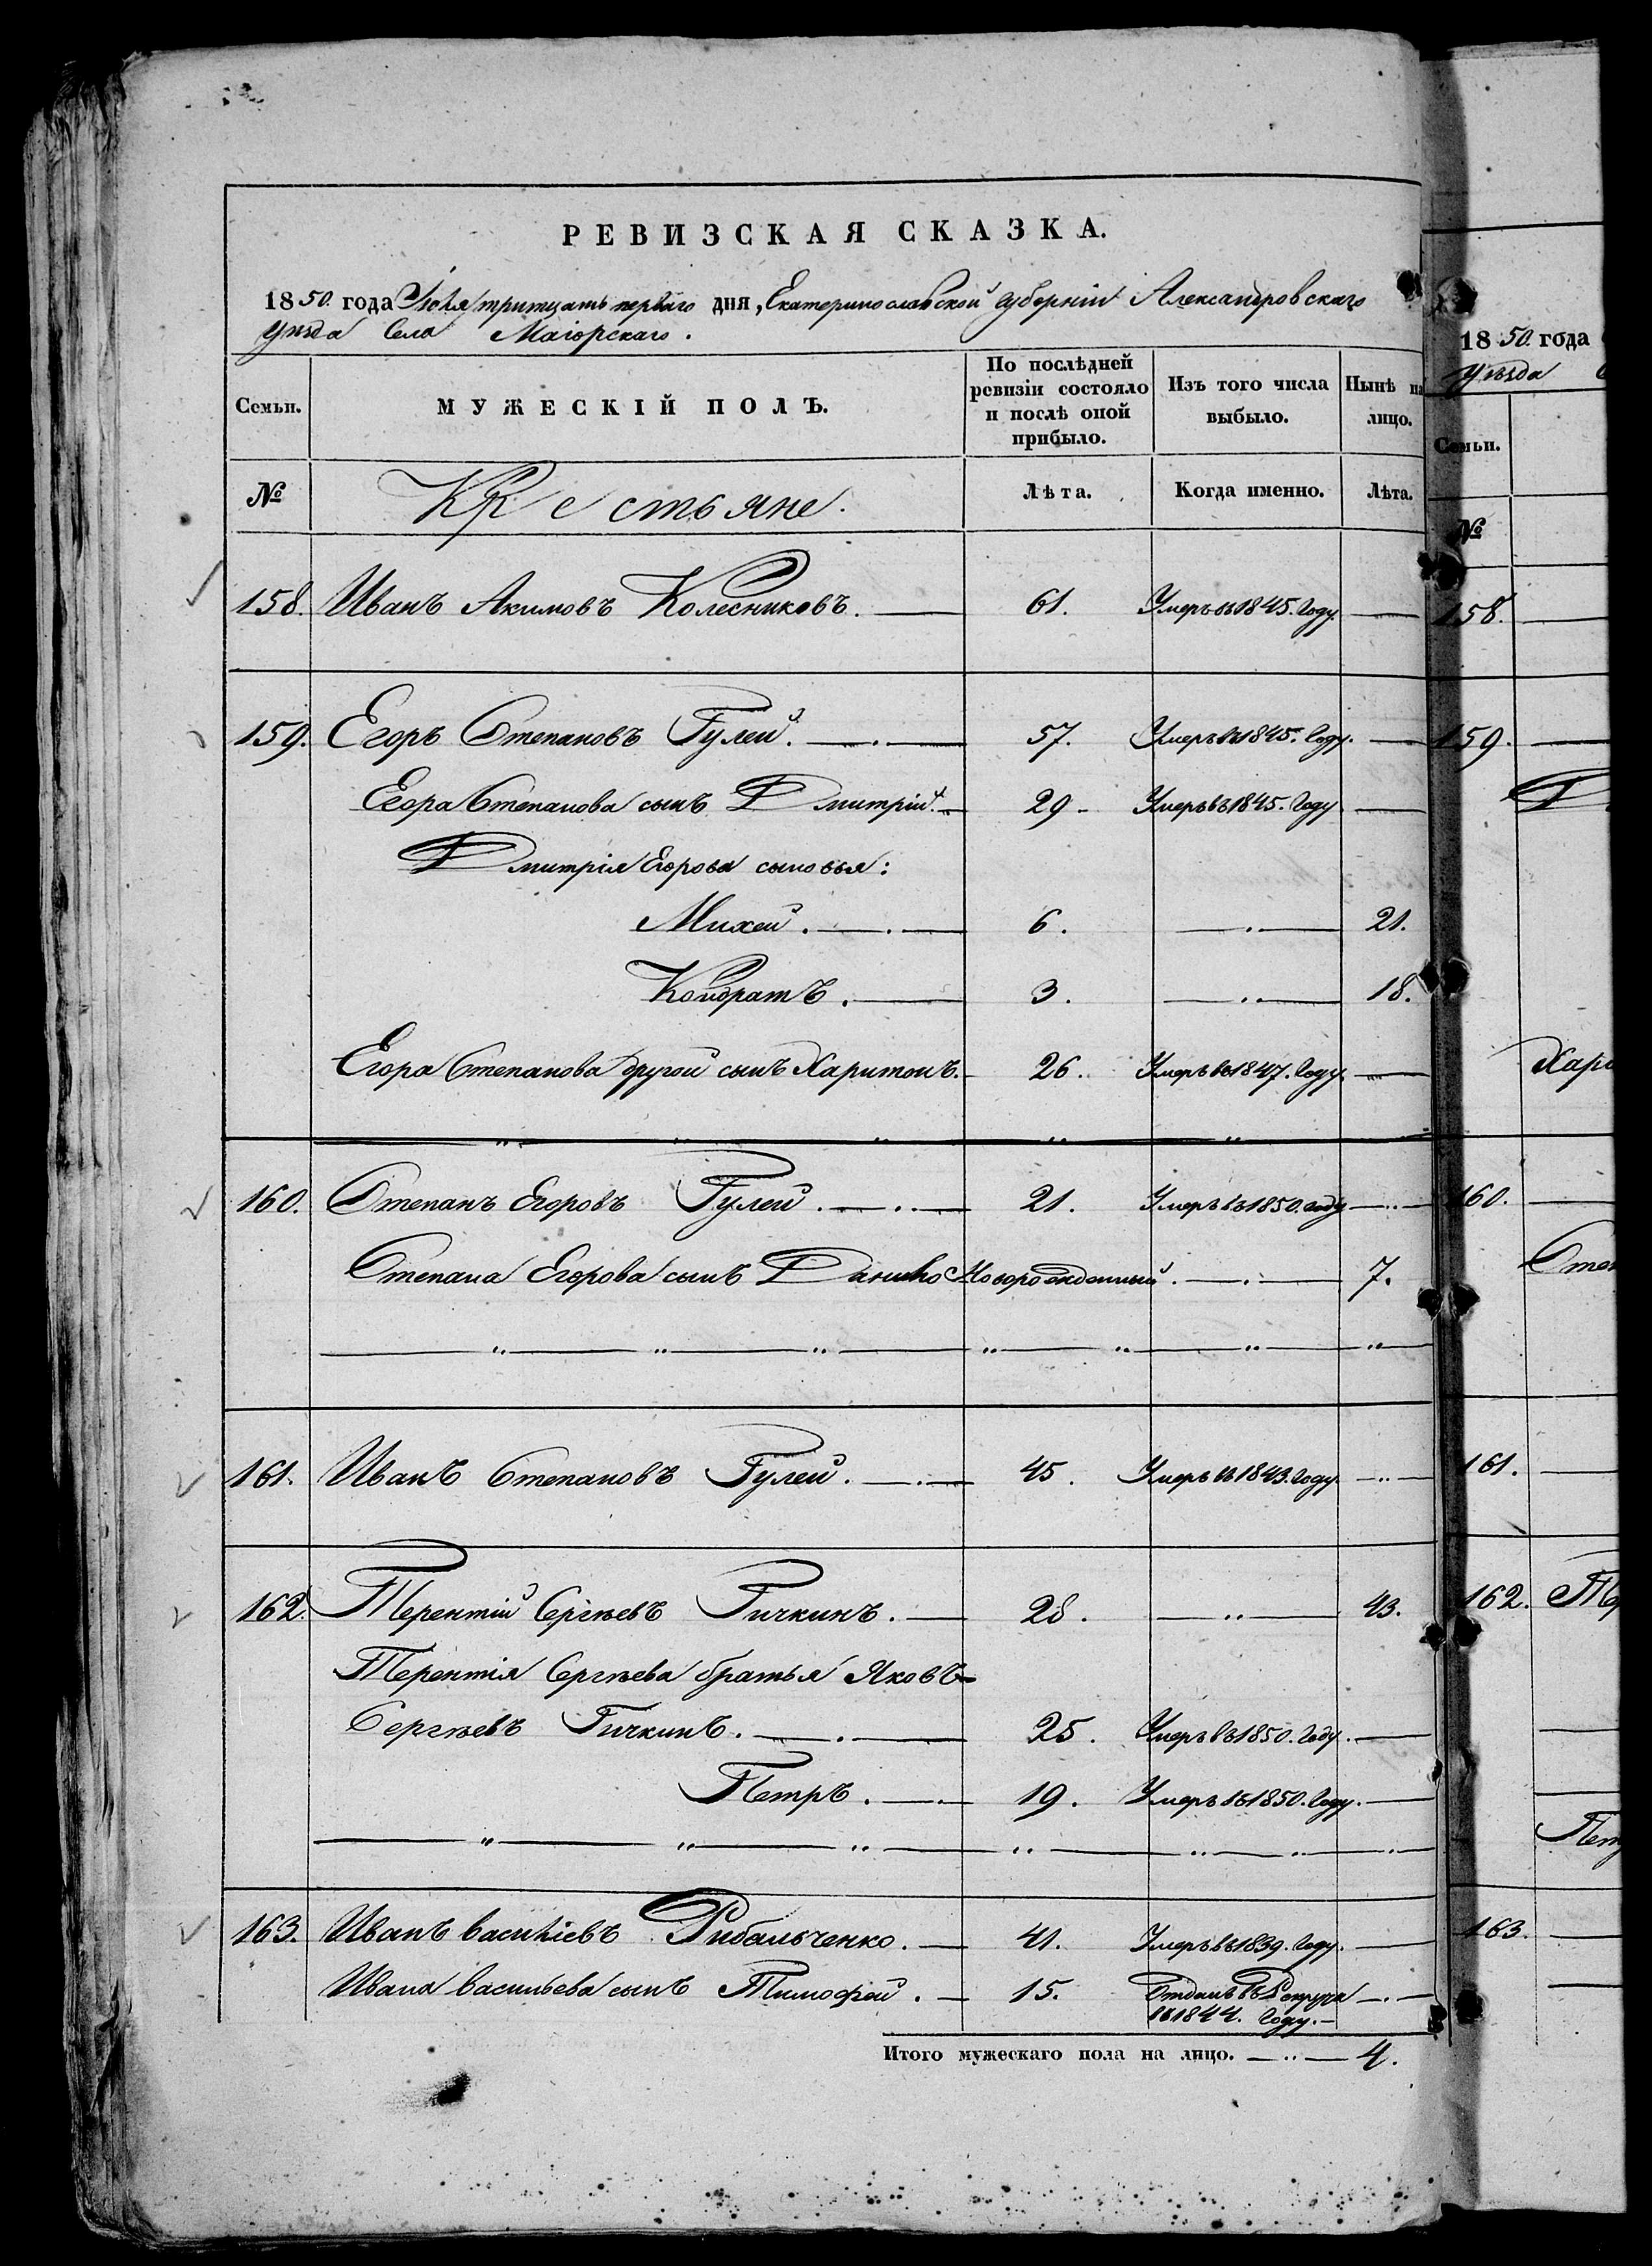 РЕВИЗСКАЯ СКАЗКА.
1850. года Іюля тритцать перваго дня, Екатеринославской губерніи Александровскаго
уѣзда Села Маіорскаго.
Семьи.
МУЖЕСКІЙ ПОЛЪ.
По послѣдней ревизіи состояло и послѣ оной прибыло.
Изъ того числа выбыло.
Нынѣ на лицо.
№
Крестьяне.
Лѣта.
Когда именно.
Лѣта.
158. Иванъ Акимовъ Колесниковъ. 61. Умеръ въ 1845. Году.
159. Егоръ Степановъ Гулей. 57. Умеръ въ 1845. Году.
Егора Степанова сынъ Дмитрій. 29 Умеръ въ 1845. Году
Дмитрія Егорова сыновья:
Михей. 6. 21.
Кондратъ. 3. 18.
Егора Степанова другой сынъ Харитонъ. 26. Умеръ въ 1847. Году.
160. Степанъ Егоровъ Гулей. 21. Умеръ въ 1850. году
Степана Егорова сынъ Данило Новорожденный. 7.
161. Иванъ Степановъ Гулей. 45. Умеръ въ 1843. Году.
162. Терентій Сергѣевъ Гичкинъ. 28. 43.
Терентія Сергѣева братья Яковъ
Сергѣевъ Гичкинъ. 25. Умеръ въ 1850. Году.
Петръ. 19. Умеръ въ 1850. Году.
163. Иванъ василіевъ Рибальченко. 41. Умеръ въ 1839. Году.
Ивана васильева сынъ Тимофей. 15. Отданъ въ Рекруты
въ 1844. Году.
Итого мужескаго пола на лицо. 4.
1850. года
Уѣзда
Семьи.
№
158.
159.
160.
161.
162.
163.